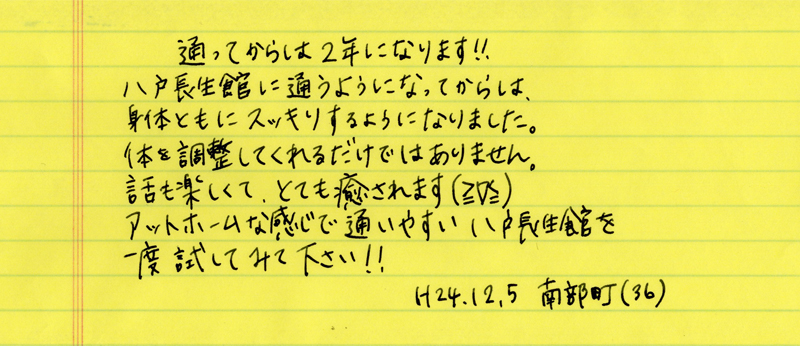 通ってからは2年になります!!
八戸長生館に通うようになってからは、
身体ともにスッキリするようになりました。
体を調整してくれるだけではありません。
話も楽しくて、とても癒されます(≧∇≦)
アットホームな感じで通いやすい八戸長生館を
一度試してみて下さい!!
H24.12.5 南部町(36)